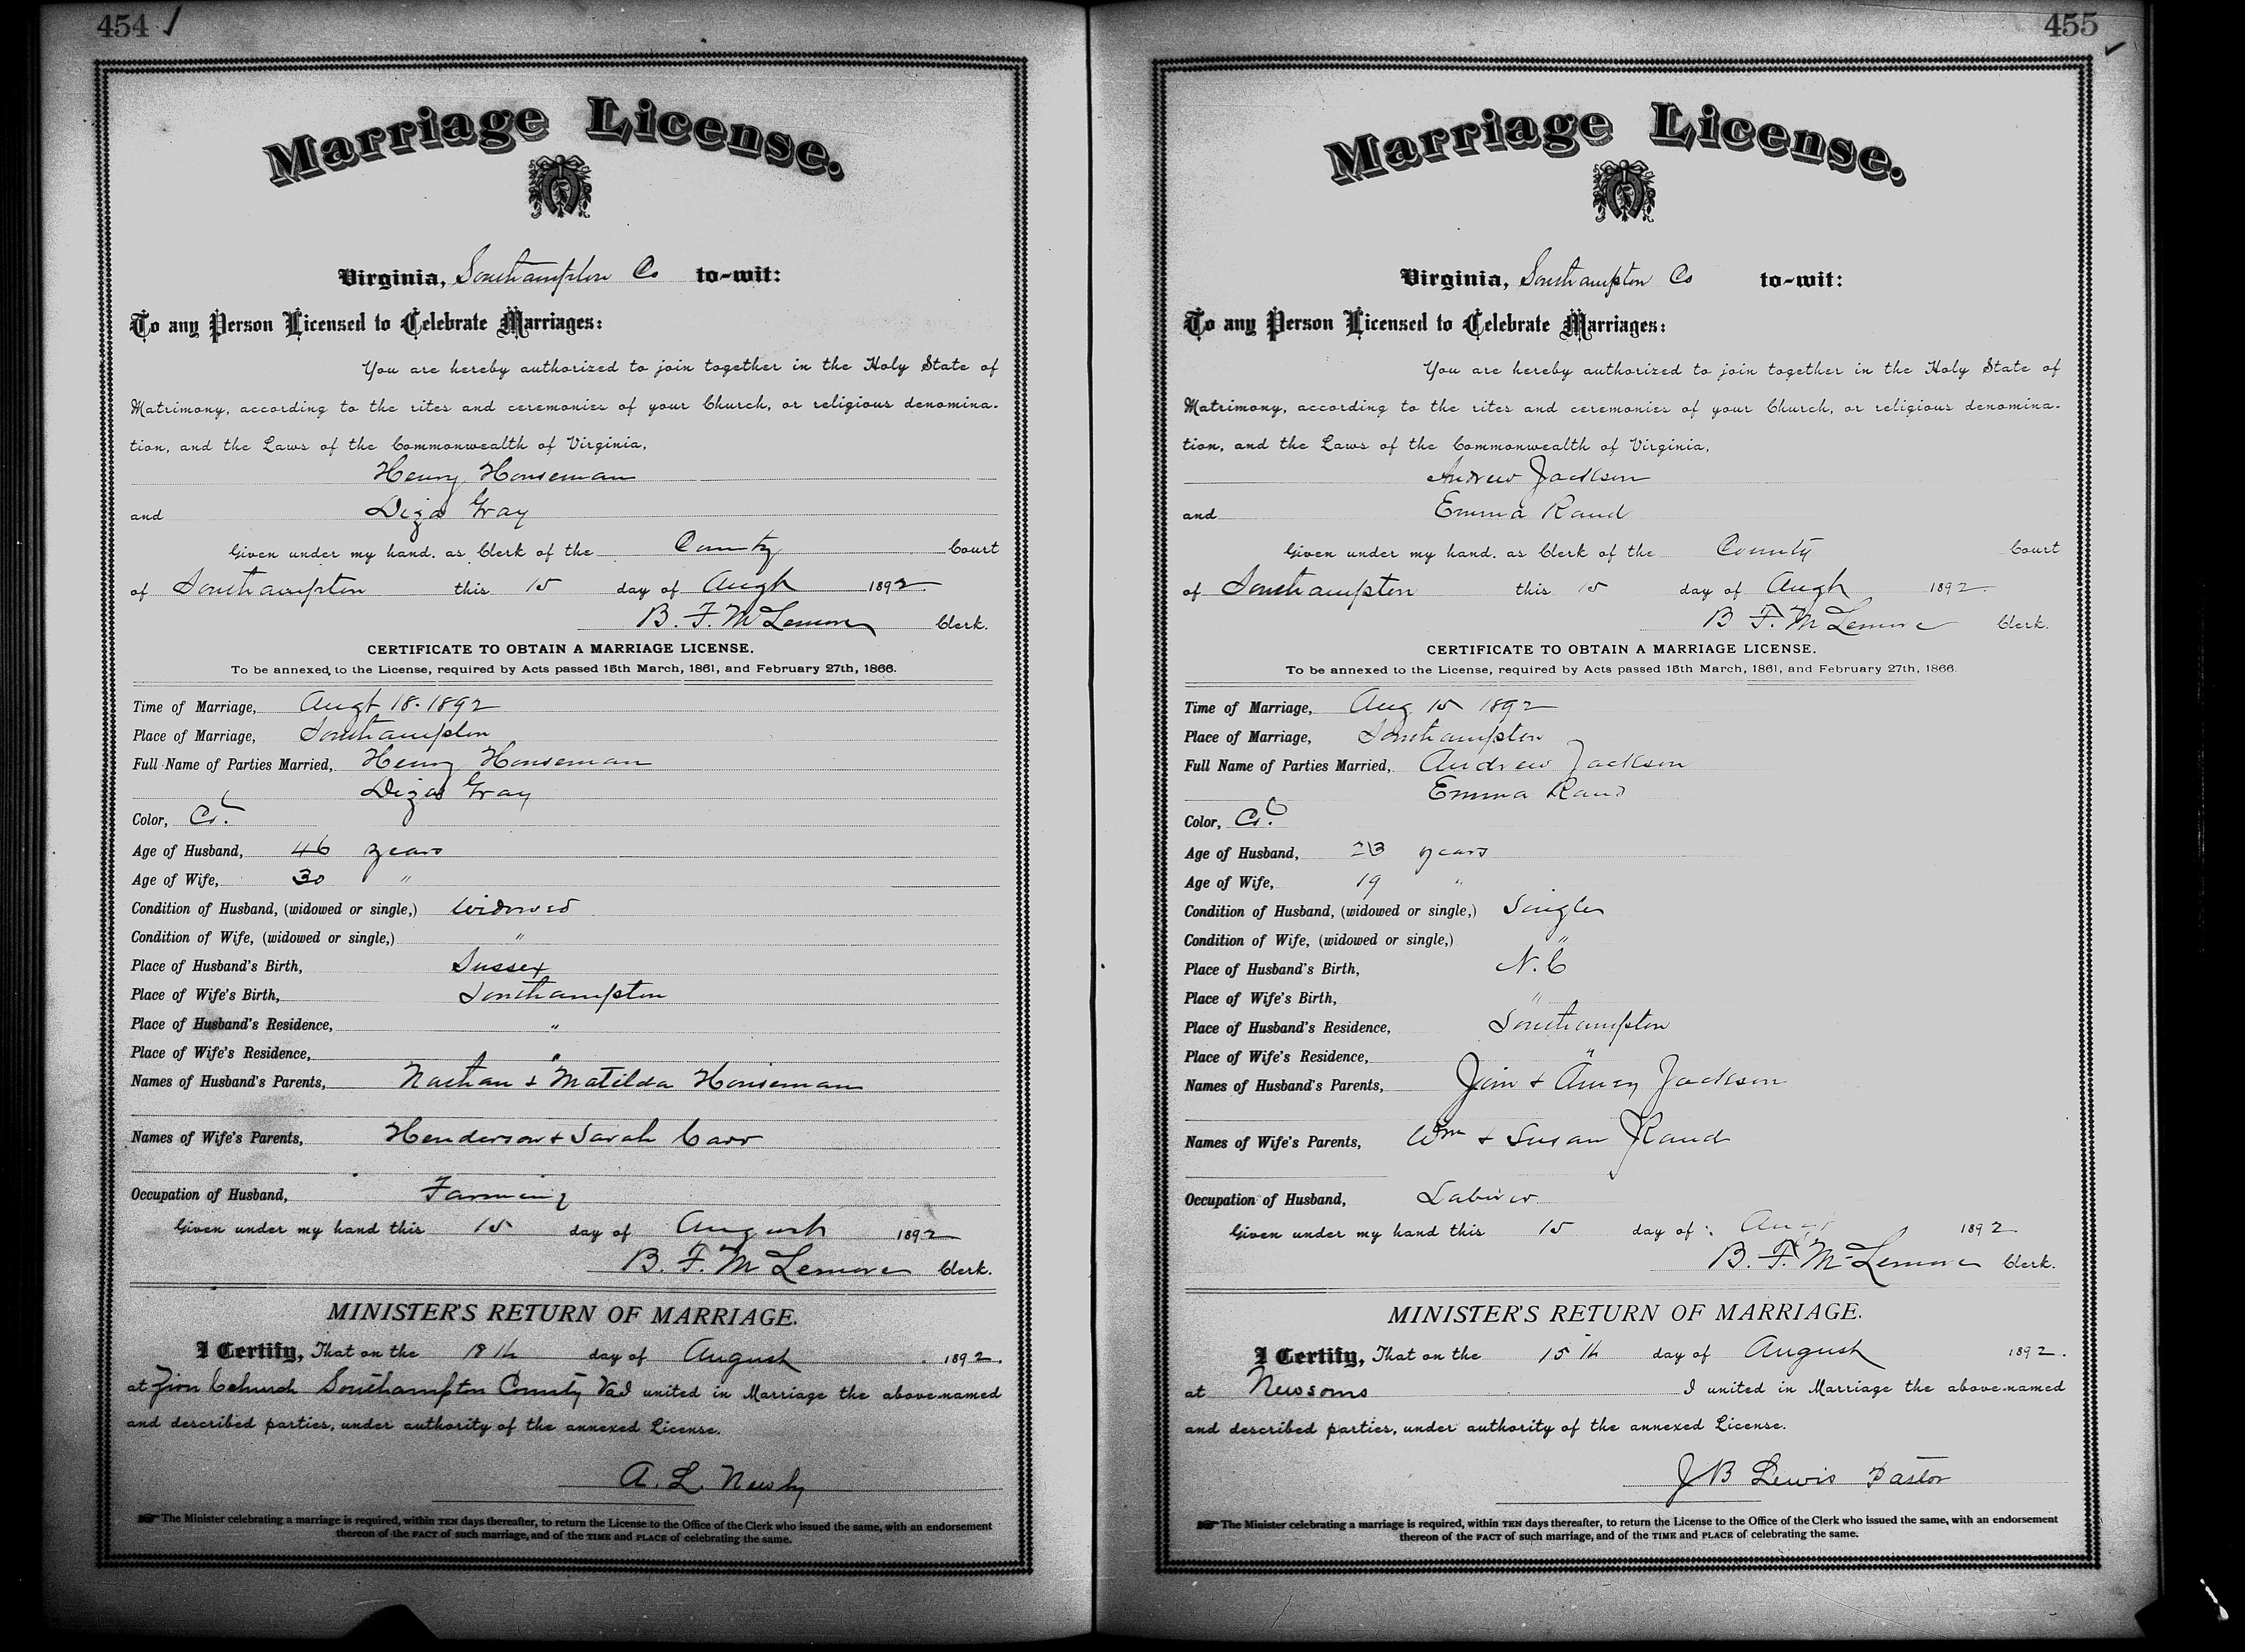 454
Marriage License.
Virginia, Southampton Co to-wit:
To any Person Licensed to Celebrate Marriages:
You are hereby authorized to join together in the Holy State of
Matrimony, according to the rites and ceremonies of your Church, or religious denomina-
tion, and the Laws of the Commonwealth of Virginia,
Henry Houseman
and Liza Gray
Given under my hand, as Clerk of the County Court
of Southampton this 15 day of Augt 1892
B. F. McLemore Clerk.
CERTIFICATE TO OBTAIN A MARRIAGE LICENSE.
To be annexed to the License, required by Acts passed 15th March, 1861, and February 27th, 1866.
Time of Marriage, Augt 18. 1892
Place of Marriage, Southampton
Full Name of Parties Married, Henry Houseman
Liza Gray
Color, Col.
Age of Husband, 46 years
Age of Wife, 30 "
Condition of Husband, (widowed or single,) widowed
Condition of Wife, (widowed or single,) "
Place of Husband's Birth, Sussex
Place of Wife's Birth, Southampton
Place of Husband's Residence, "
Place of Wife's Residence, "
Names of Husband's Parents, Nathan & Matilda Houseman
Names of Wife's Parents, Henderson & Sarah Carr
Occupation of Husband, Farming
Given under my hand this 15 day of August 1892
B. F. McLemore Clerk.
MINISTER'S RETURN OF MARRIAGE.
I Certify, That on the 18th day of August 1892.
at Zion Church Southampton County Va I united in Marriage the above-named
and described parties, under authority of the annexed License.
A. L. Newby
The Minister celebrating a marriage is required, within TEN days thereafter, to return the License to the Office of the Clerk who issued the same, with an endorsement
thereon of the FACT of such marriage, and of the TIME and PLACE of celebrating the same.
455
Marriage License.
Virginia, Southampton Co to-wit:
To any Person Licensed to Celebrate Marriages:
You are hereby authorized to join together in the Holy State of
Matrimony, according to the rites and ceremonies of your Church, or religious denomina-
tion, and the Laws of the Commonwealth of Virginia,
Andrew Jackson
and Emma Rand
Given under my hand, as Clerk of the County Court
of Southampton this 15 day of Augt 1892.
B F. McLemore Clerk.
CERTIFICATE TO OBTAIN A MARRIAGE LICENSE.
To be annexed to the License, required by Acts passed 15th March, 1861, and February 27th, 1866.
Time of Marriage, Aug 15 1892
Place of Marriage, Southampton
Full Name of Parties Married, Andrew Jackson
Emma Rand
Color, Col.
Age of Husband, 23 years
Age of Wife, 19 "
Condition of Husband, (widowed or single,) Single
Condition of Wife, (widowed or single,) "
Place of Husband's Birth, N. C
Place of Wife's Birth, "
Place of Husband's Residence, Southampton
Place of Wife's Residence, "
Names of Husband's Parents, Jim & Amey Jackson
Names of Wife's Parents, Wm & Susan Rand
Occupation of Husband, Laborer
Given under my hand this 15 day of Augt 1892
B. F. McLemore Clerk.
MINISTER'S RETURN OF MARRIAGE.
I Certify, That on the 15th day of August 1892.
at Newsoms I united in Marriage the above-named
and described parties, under authority of the annexed License.
J B Lewis Pastor
The Minister celebrating a marriage is required, within TEN days thereafter, to return the License to the Office of the Clerk who issued the same, with an endorsement
thereon of the FACT of such marriage, and of the TIME and PLACE of celebrating the same.